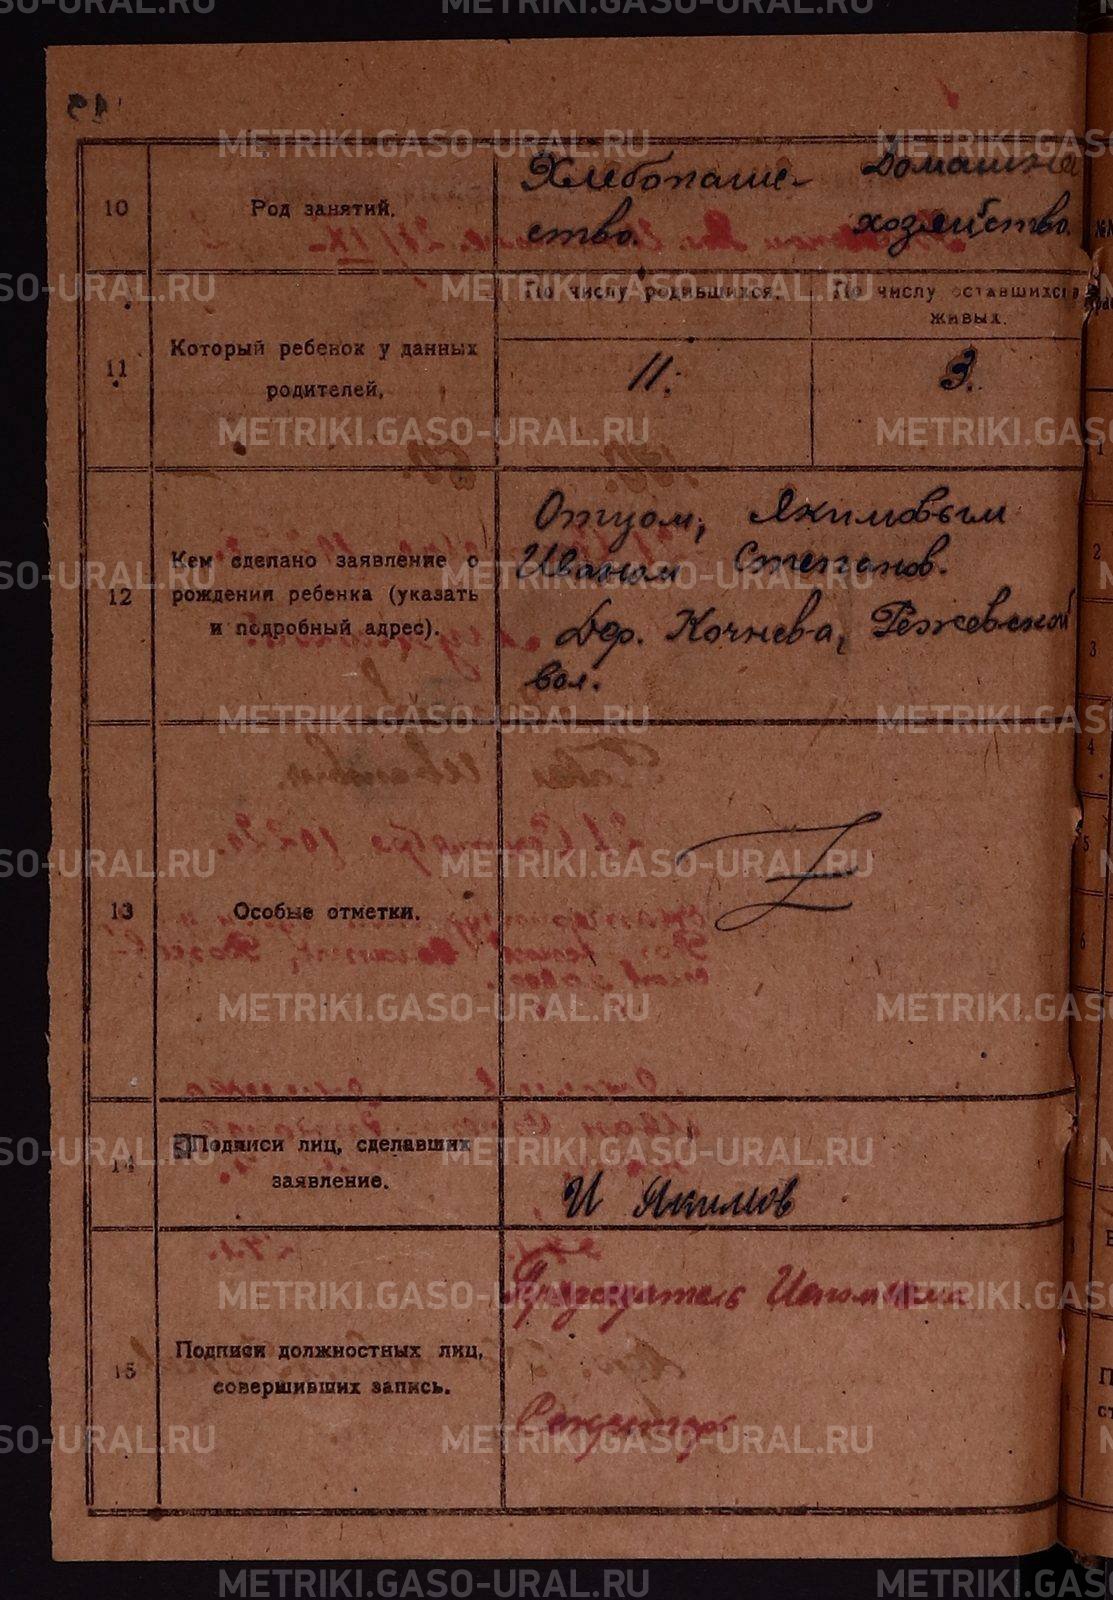 10
Род занятий.
Хлебопаше-
ство.
Домашнее
хозяйство.
11
Который ребенок у данных
родителей.
По числу родившихся.
По числу оставшихся
живых.
11.
3.
12
Кем сделано заявление о
рождении ребенка (указать
и подробный адрес).
Отцом, Якимовым
Иваном Степанов.
Дер. Кочнева, Режевской
вол.
13
Особые отметки.
Z
14
Подписи лиц, сделавших
заявление.
И Якимов
15
Подписи должностных лиц,
совершивших запись.
Председатель Исполкома
Секретарь
METRIKI.GASO-URAL.RU